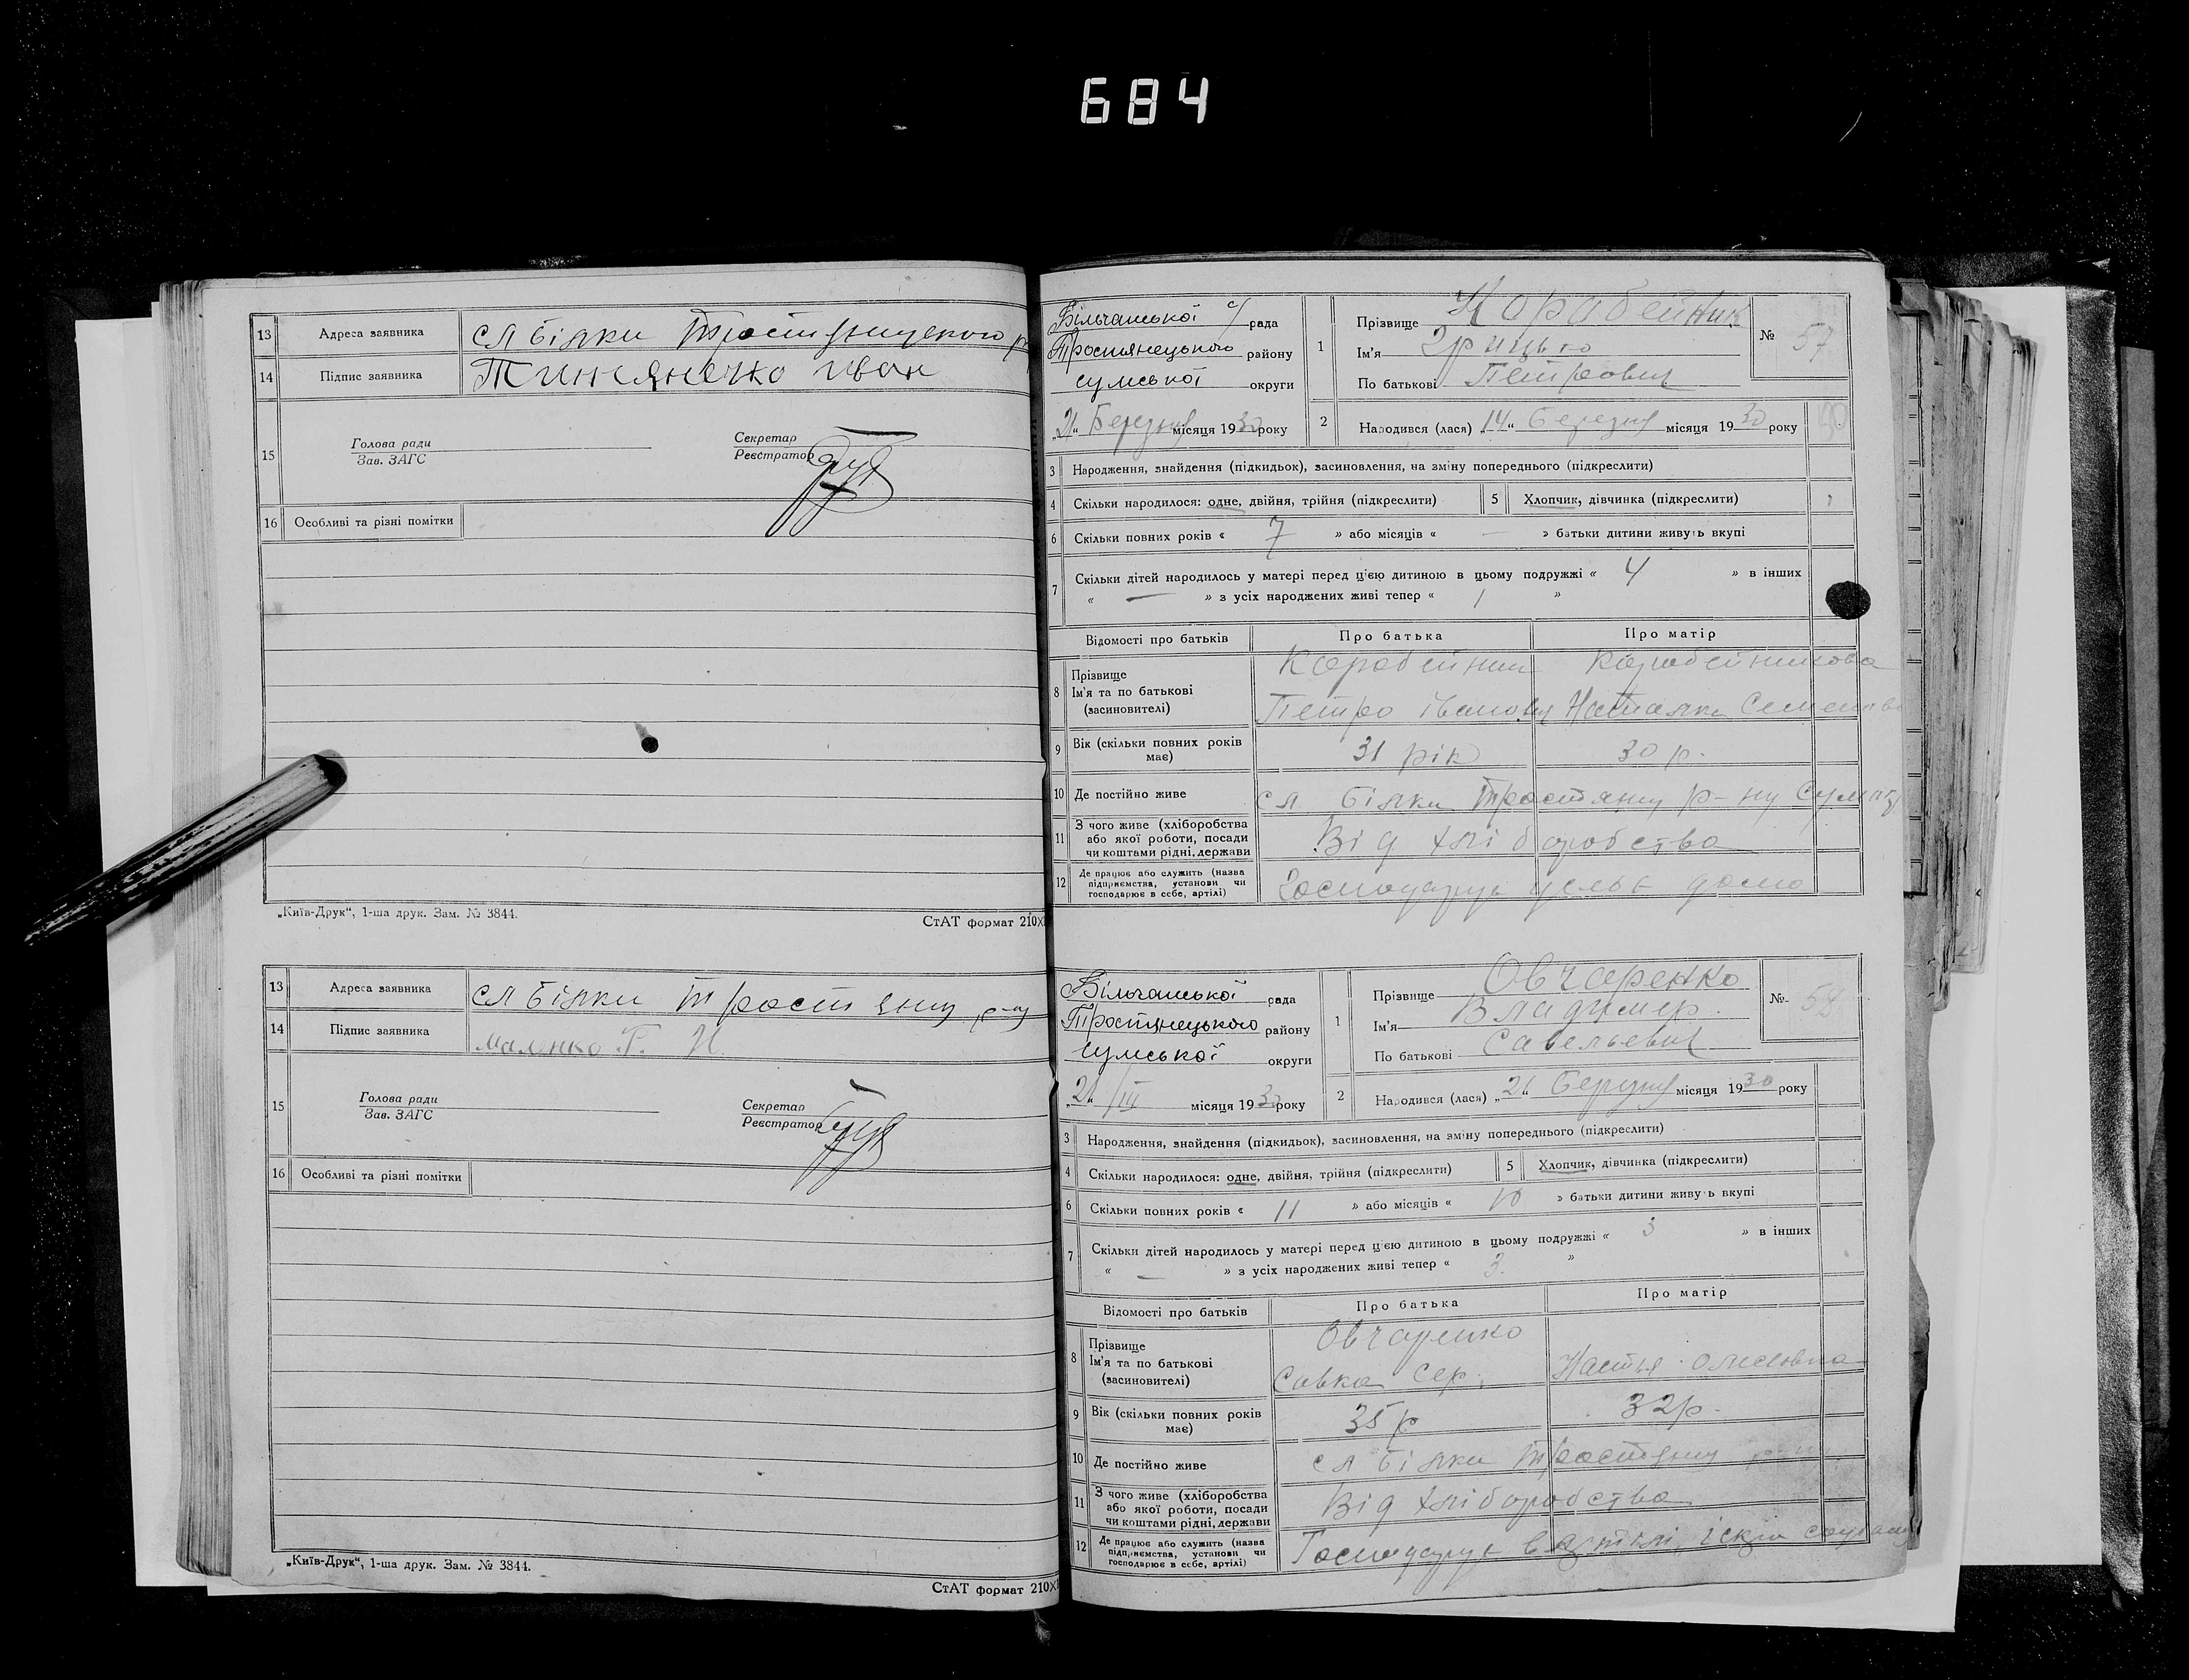 684
13 Адреса заявника сл Білки Тростянецького р
14 Підпис заявника Тиняненко Иван
15 Голова ради
Зав. ЗАГС
Секретар
Реєстратор
16 Особливі та різні помітки
„Київ-Друк“, 1-ша друк. Зам. № 3844.
СтАТ формат 210X
13 Адреса заявника сл Білки Тростянц р-ну
14 Підпис заявника Маленко Г. И.
15 Голова ради
Зав. ЗАГС
Секретар
Реєстратор
16 Особливі та різні помітки
„Київ-Друк“, 1-ша друк. Зам. № 3844.
СтАТ формат 210X
Більчанської рада
Тростянецького району
сумської округи
„21“ Березня місяця 1930 року
1 Прізвище Коробейник
Ім'я Грицько
По батькові Петрович
№ 57
2 Народився (лася) „14“ Березня місяця 1930 року
3 Народження, знайдення (підкидьок), засиновлення, на зміну попереднього (підкреслити)
4 Скільки народилося: одне, двійня, трійня (підкреслити) 5 Хлопчик, дівчинка (підкреслити)
6 Скільки повних років « 7 » або місяців « — » батьки дитини живуть вкупі
7 Скільки дітей народилось у матері перед цією дитиною в цьому подружжі « 4 » в інших
« — » з усіх народжених живі тепер « 1 »
Відомості про батьків Про батька Про матір
8 Прізвище
Ім'я та по батькові
(засиновителі)
Коробейник Коробейникова
Петро Іванович Наталка Семенов
9 Вік (скільки повних років має) 31 рік 30 р.
10 Де постійно живе сл Білки Тростянц р-ну Сумск
11 З чого живе (хліборобства
або якої роботи, посади
чи коштами рідні, держави
Від хліборобства
12 Де працює або служить (назва
підприємства, установи чи
господарює в себе, артілі)
Господарує
Більчанської рада
Тростянецького району
сумської округи
„21“ III місяця 1930 року
1 Прізвище Овчаренко
Ім'я Владимер
По батькові Савельевич
№ 58
2 Народився (лася) „21“ Березня місяця 1930 року
3 Народження, знайдення (підкидьок), засиновлення, на зміну попереднього (підкреслити)
4 Скільки народилося: одне, двійня, трійня (підкреслити) 5 Хлопчик, дівчинка (підкреслити)
6 Скільки повних років « 11 » або місяців « 10 » батьки дитини живуть вкупі
7 Скільки дітей народилось у матері перед цією дитиною в цьому подружжі « 3 » в інших
« — » з усіх народжених живі тепер « 3. »
Відомості про батьків Про батька Про матір
8 Прізвище
Ім'я та по батькові
(засиновителі)
Овчаренко
Савка Сер. Настя
9 Вік (скільки повних років має) 35 р 32 р.
10 Де постійно живе сл Білки Тростянц
11 З чого живе (хліборобства
або якої роботи, посади
чи коштами рідні, держави
Від хліборобства
12 Де працює або служить (назва
підприємства, установи чи
господарює в себе, артілі)
Господарує в артілі